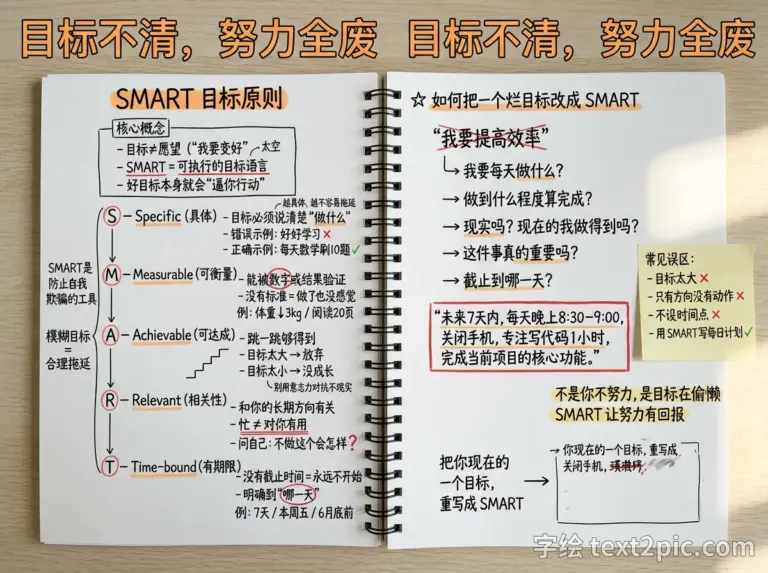 目标不清，努力全废 目标不清，努力全废
SMART 目标原则
核心概念
- 目标≠愿望（“我要变好”
太空
- SMART = 可执行的目标语言
- 好目标本身就会“逼你行动”
SMART是
防止自我
欺骗的工具
模糊目标
=
合理拖延
S - Specific (具体)
越具体，越不容易拖延
- 目标必须说清楚“做什么”
- 错误示例：好好学习 ×
- 正确示例：每天数学刷10题 ✓
M - Measurable (可衡量)
- 能被数字或结果验证
- 没有标准=做了也没感觉
例：体重↓3kg / 阅读20页
A - Achievable (可达成)
- 跳一跳够得到
- 目标太大 → 放弃
- 目标太小 → 没成长
别用意志力对抗不现实
R - Relevant (相关性)
- 和你的长期方向有关
- 忙 ≠ 对你有用
- 问自己：不做这个会怎样？
T - Time-bound (有期限)
- 没有截止时间=永远不开始
- 明确到“哪一天”
例：7天 / 本周五 / 6月底前
☆ 如何把一个烂目标改成 SMART
“我要提高效率”
→ 我要每天做什么？
→ 做到什么程度算完成？
→ 现实吗？现在的我做得到吗？
→ 这件事真的重要吗？
→ 截止到哪一天？
“未来7天内，每天晚上8:30-9:00，
关闭手机，专注写代码1小时，
完成当前项目的核心功能。”
常见误区：
- 目标太大 ×
- 只有方向没有动作 ×
- 不设时间点 ×
- 用 SMART 写每日计划 ✓
不是你不努力，是目标在偷懒
SMART 让努力有回报
把你现在的
一个目标，
重写成 SMART
→ 你现在的一个目标，重写成
关闭手机，
字绘 text2pic.com